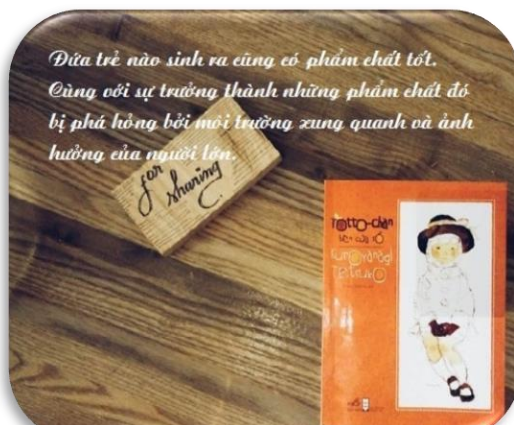 Đứa trẻ nào sinh ra cũng có phẩm chất tốt.
Cùng với sự trưởng thành những phẩm chất đó
bị phá hỏng bởi môi trường xung quanh và ảnh
hưởng của người lớn.
for
sharing
Totto-chan
bên cửa sổ